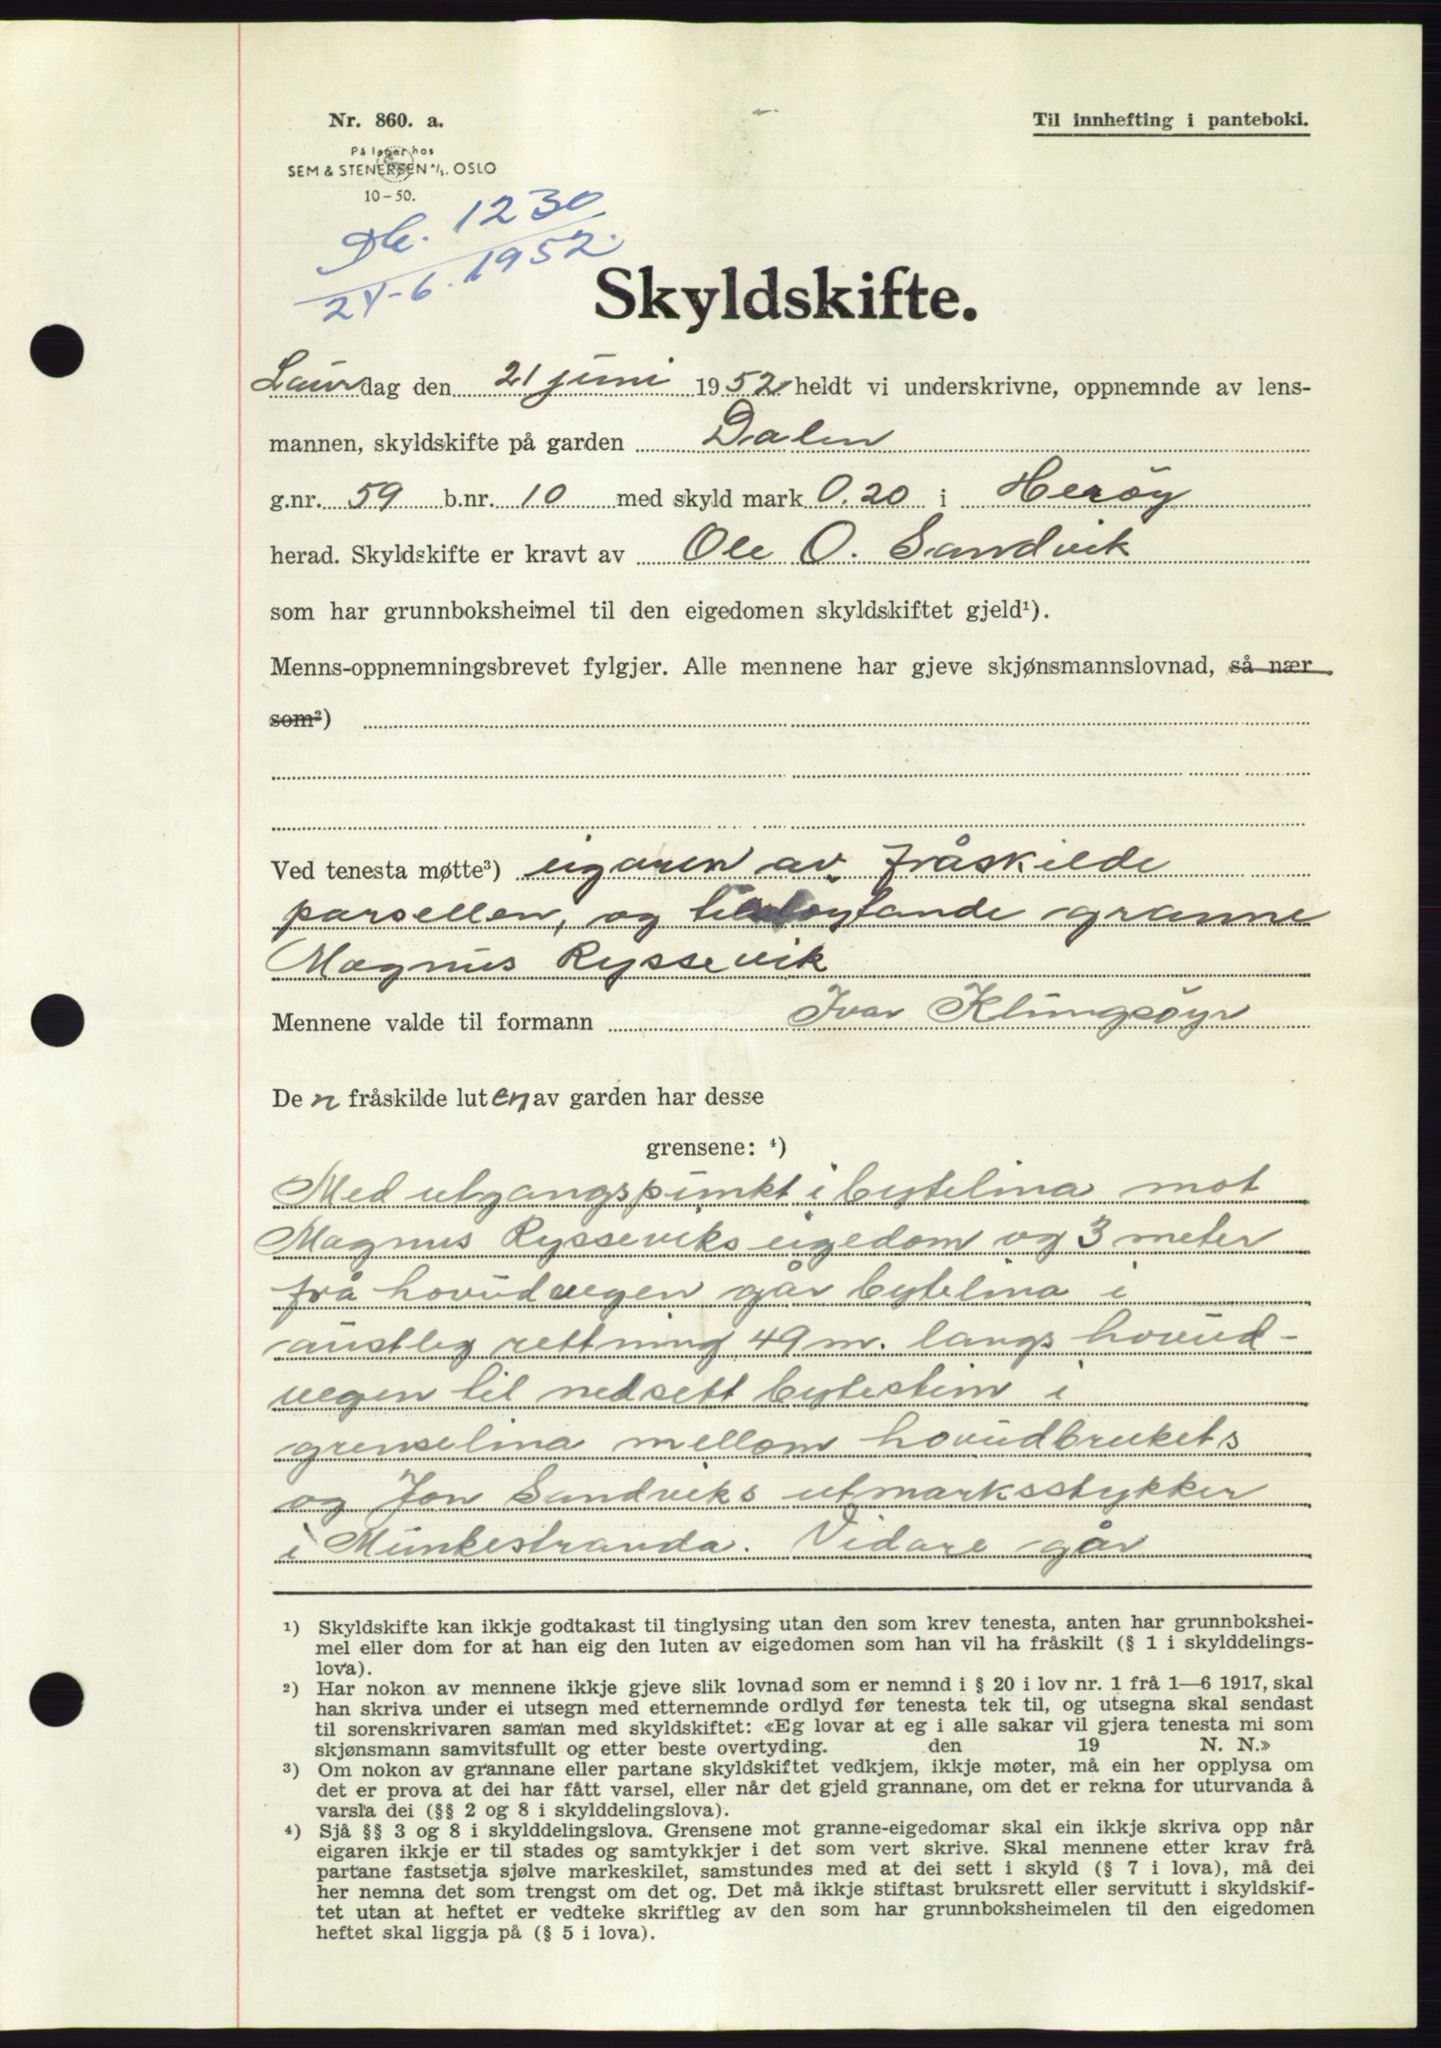 Nr. 860. a.
Til innhefting i panteboki.
På lager hos
SEM & STENERSEN A/S, OSLO
10-50.
Db. 1230
24-6. 1952.
Skyldskifte.
Laurdag den 21 juni 1952 heldt vi underskrivne, oppnemnde av lens-
mannen, skyldskifte på garden Dalen
g.nr. 59 b.nr. 10 med skyld mark 0.20 i Herøy
herad. Skyldskifte er kravt av Ole O. Sandvik
som har grunnboksheimel til den eigedomen skyldskiftet gjeld¹).
Menns-oppnemningsbrevet fylgjer. Alle mennene har gjeve skjønsmannslovnad, så nær
som²)
Ved tenesta møtte³) eigaren av fråskilde
parsellen, og granne
Magnus Ryssevik
Mennene valde til formann Ivar Klungsöyr
Den fråskilde luten av garden har desse
grensene: ⁴)
Med utgangspunkt i bytelina mot
Magnus Rysseviks eigedom og 3 meter
frå hovudvegen går bytelina i
austleg rettning 49 m. langs hovud-
vegen til nedsett bytestein i
grenselina mellom hovudbrukets
og Jon Sandviks utmarksstykker
i Munkestranda. Vidare går
¹) Skyldskifte kan ikkje godtakast til tinglysing utan den som krev tenesta, anten har grunnbokshei-
mel eller dom for at han eig den luten av eigedomen som han vil ha fråskilt (§ 1 i skylddelings-
lova).
²) Har nokon av mennene ikkje gjeve slik lovnad som er nemnd i § 20 i lov nr. 1 frå 1—6 1917, skal
han skriva under ei utsegn med etternemnde ordlyd før tenesta tek til, og utsegna skal sendast
til sorenskrivaren saman med skyldskiftet: «Eg lovar at eg i alle sakar vil gjera tenesta mi som
skjønsmann samvitsfullt og etter beste overtyding. den 19 N. N.»
³) Om nokon av grannane eller partane skyldskiftet vedkjem, ikkje møter, må ein her opplysa om
det er prova at dei har fått varsel, eller når det gjeld grannane, om det er rekna for uturvanda å
varsla dei (§§ 2 og 8 i skylddelingslova).
⁴) Sjå §§ 3 og 8 i skylddelingslova. Grensene mot granne-eigedomar skal ein ikkje skriva opp når
eigaren ikkje er til stades og samtykkjer i det som vert skrive. Skal mennene etter krav frå
partane fastsetja sjølve markeskilet, samstundes med at dei sett i skyld (§ 7 i lova), må dei
her nemna det som trengst om det og. Det må ikkje stiftast bruksrett eller servitutt i skyldskif-
tet utan at heftet er vedteke skriftleg av den som har grunnboksheimelen til den eigedomen
heftet skal liggja på (§ 5 i lova).